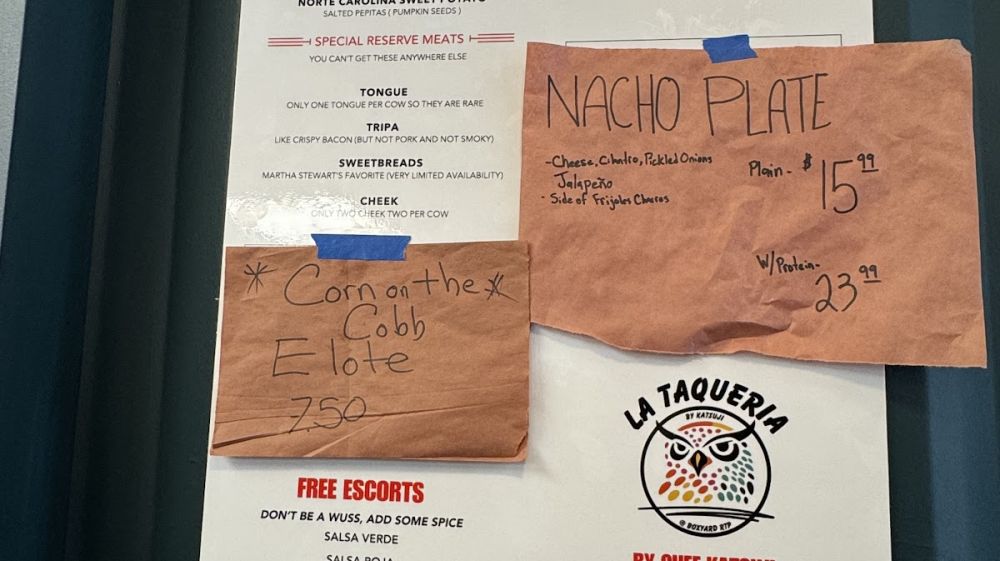 NORTE CAROLINA SWEET POTATO
SALTED PEPITAS ( PUMPKIN SEEDS )
SPECIAL RESERVE MEATS
YOU CAN'T GET THESE ANYWHERE ELSE
TONGUE
ONLY ONE TONGUE PER COW SO THEY ARE RARE
TRIPA
LIKE CRISPY BACON (BUT NOT PORK AND NOT SMOKY)
SWEETBREADS
MARTHA STEWART'S FAVORITE (VERY LIMITED AVAILABILITY)
CHEEK
ONLY TWO CHEEK TWO PER COW
* Corn on the *
Cobb
Elote
7.50
FREE ESCORTS
DON'T BE A WUSS, ADD SOME SPICE
SALSA VERDE
SALSA ROJA
NACHO PLATE
- Cheese, Cilantro, Pickled Onions
Jalapeño
- Side of Frijoles Charros
Plain - $15.99
W/ Protein - 23.99
LA TAQUERIA
BY KATSUJI
@ BOXYARD RTP
BY CHEF KATSUJI